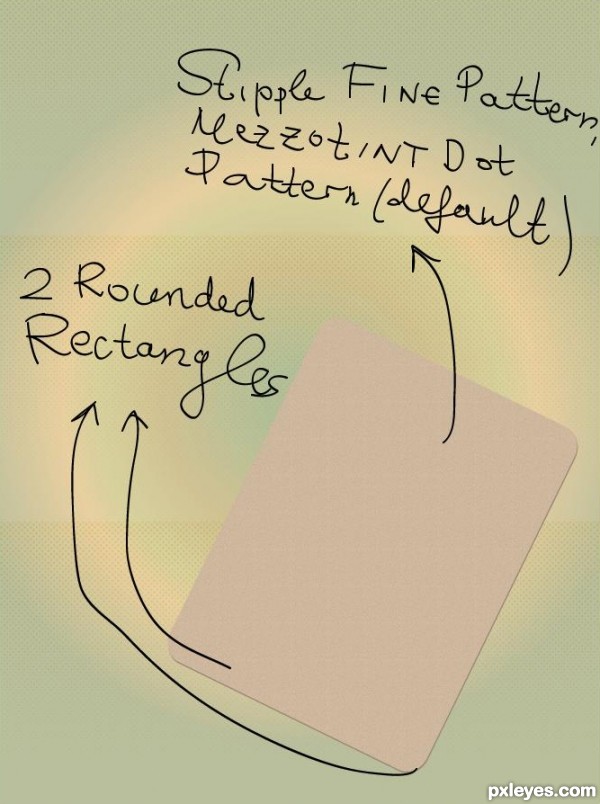 Stipple FINE Pattern,
MezzotINT Dot
Pattern (default)
2 Rounded
Rectangles
pxleyes.com